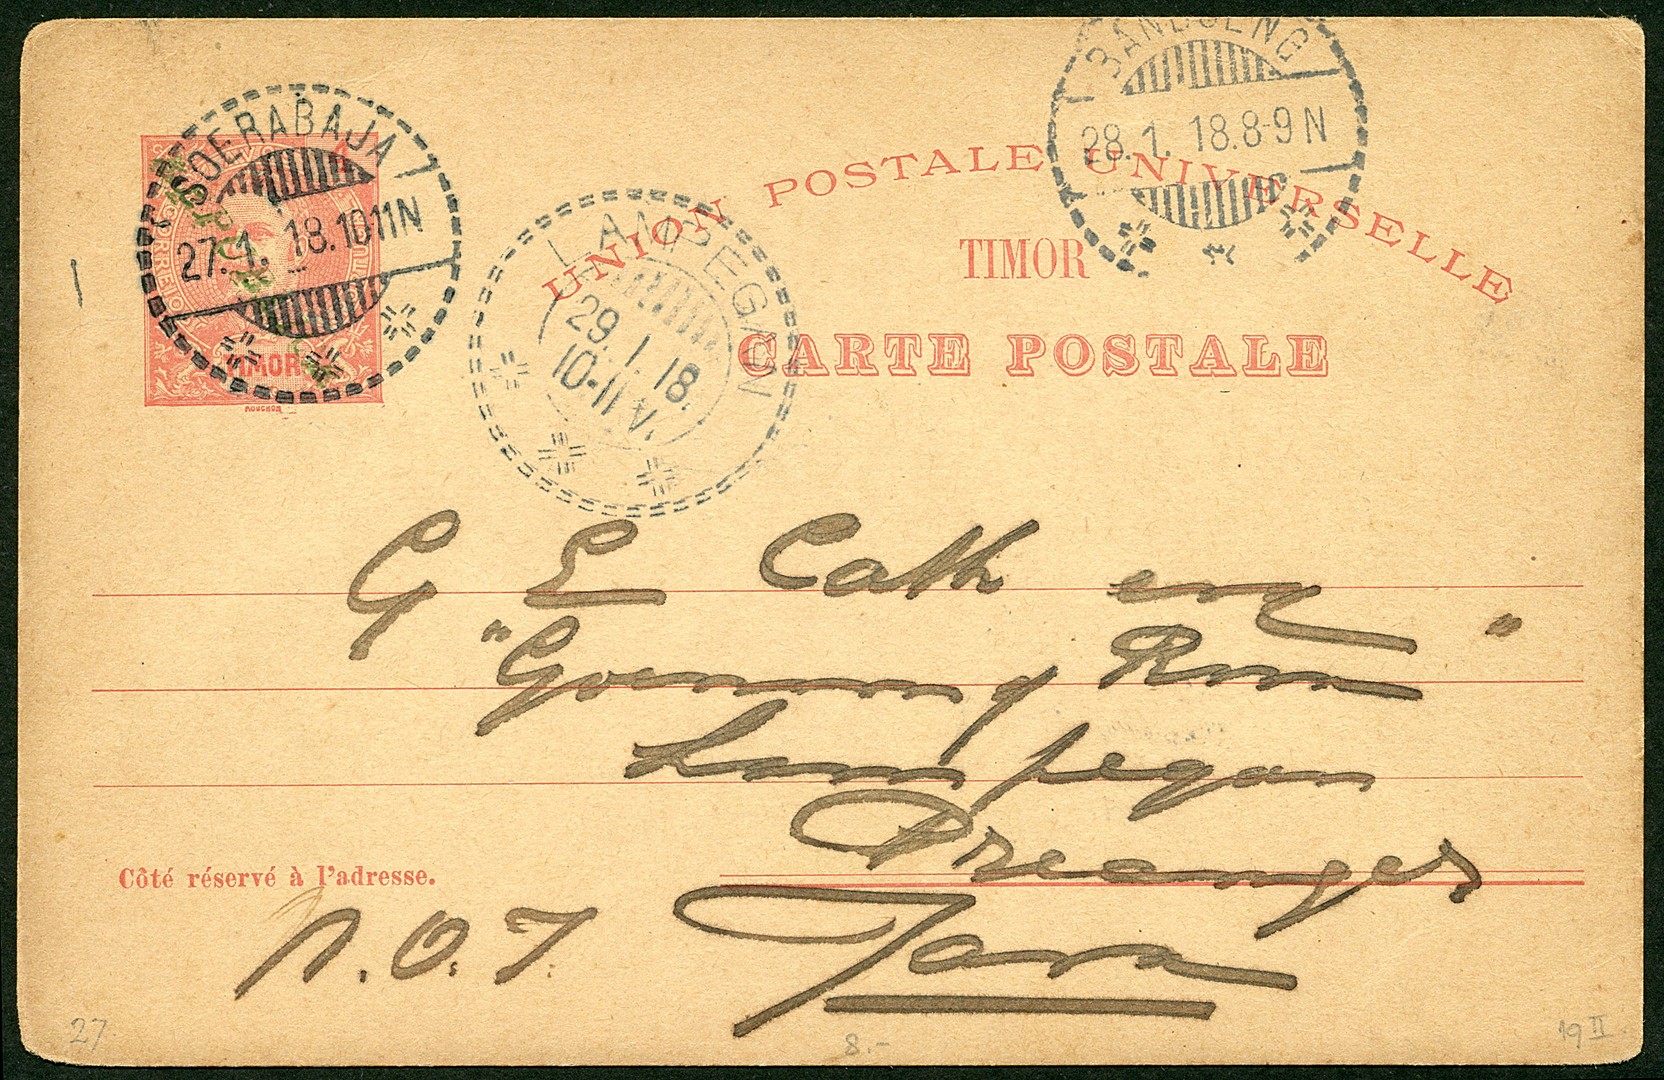 SOERABAJA
27.1.18.10-11N
CORREIO
TIMOR
MOUCHON
LAMPEGAN
29.1.18.
10-11V.
BANDOENG
28.1.18.8-9N
UNION POSTALE UNIVERSELLE
TIMOR
CARTE POSTALE
G E Cath
"Goenoeng "
Lampegan
Preanger
Côté réservé à l'adresse.
N.O.I
Java
27
8.-
19 II